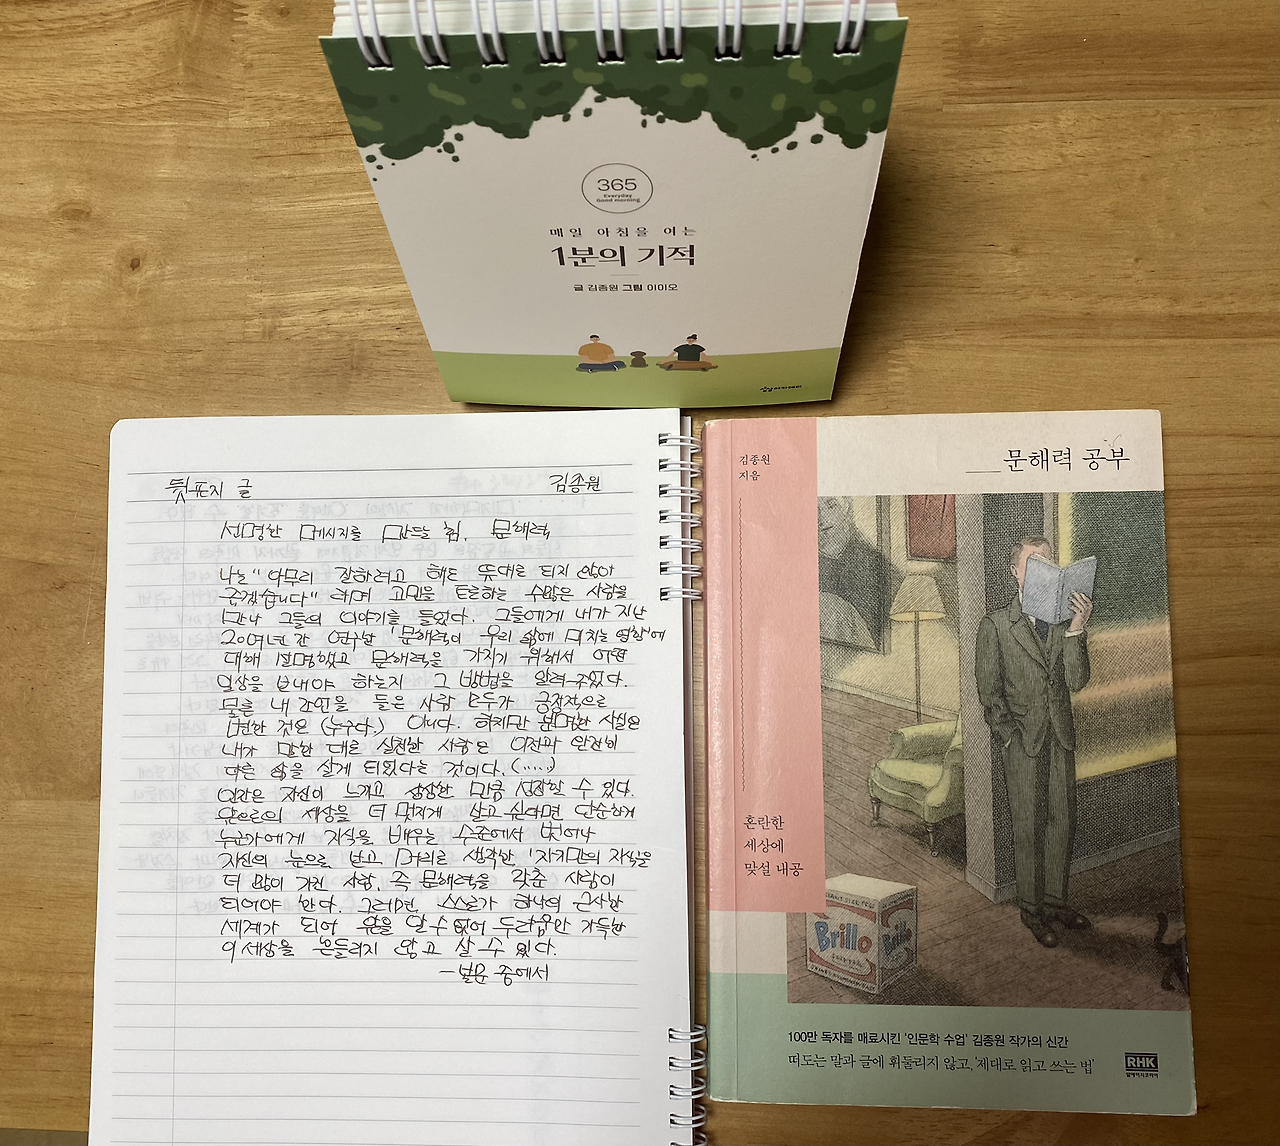 365
Everyday
Good morning
매일 아침을 여는
1분의 기적
글 김종원 그림 이이오
상상아카데미
뒷표지 글 김종원
선명한 메시지를 만드는 힘, 문해력
나는 "아무리 잘하려고 해도 뜻대로 되지 않아
죽겠습니다" 하며 고민을 토로하는 수많은 사람을
만나 그들의 이야기를 들었다. 그들에게 내가 지난
20여년 간 연구한 '문해력이 우리 삶에 미치는 영향'에
대해 설명했고 문해력을 가지기 위해서 어떤
일상을 보내야 하는지 그 방법을 알려주었다.
물론 내 강연을 들은 사람 모두가 긍정적으로
변한 것은 (누구다.) 아니다. 하지만 분명한 사실은
내가 말한 대로 실천한 사람은 이전과 완전히
다른 삶을 살게 되었다는 것이다. (.....)
인간은 자신이 느끼고 상상한 만큼 성장할 수 있다.
앞으로의 세상을 더 멋지게 살고 싶다면 단순하게
누군가에게 지식을 배우는 수준에서 벗어나
자신의 눈으로 보고 머리로 생각한 '자기만의 지식'을
더 많이 가진 사람, 즉 문해력을 갖춘 사람이
되어야 한다. 그러면, 스스로가 하나의 근사한
세계가 되어 앞을 알 수 없어 두려움만 가득한
이 세상을 흔들리지 않고 살 수 있다.
- 본문 중에서
김종원
지음
문해력 공부
혼란한
세상에
맞설 내공
GIANT SIZE PKG.
Brillo
Brillo
100만 독자를 매료시킨 '인문학 수업' 김종원 작가의 신간
떠도는 말과 글에 휘둘리지 않고, '제대로 읽고 쓰는 법'
RHK
알에이치코리아